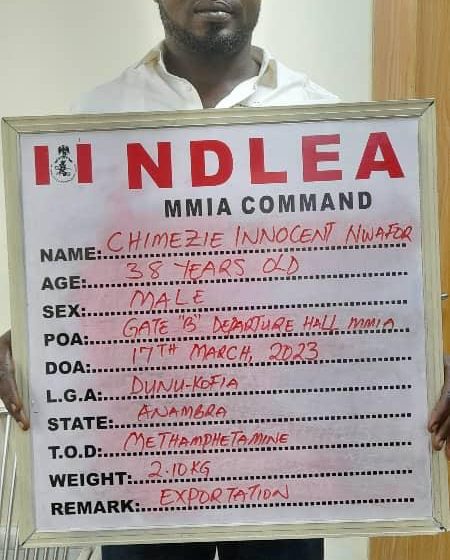 NDLEA
MMIA COMMAND
NAME: CHIMEZIE INNOCENT NWAFOR
AGE: 38 YEARS OLD
SEX: MALE
POA: GATE "B" DEPARTURE HALL MMIA
DOA: 17TH MARCH, 2023
L.G.A: DUNU-KOFIA
STATE: ANAMBRA
T.O.D: METHAMPHETAMINE
WEIGHT: 2.10KG
REMARK: EXPORTATION